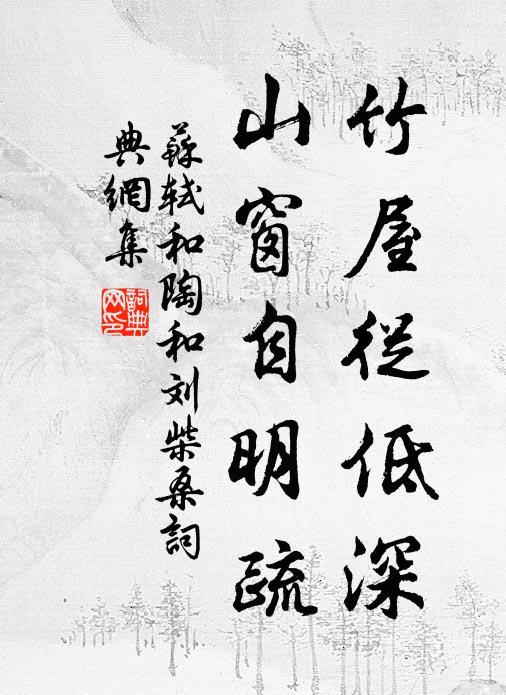 竹屋從低深
山窗自明疏
蘇轼和陶和刘柴桑詞
典網集
詞典
网印